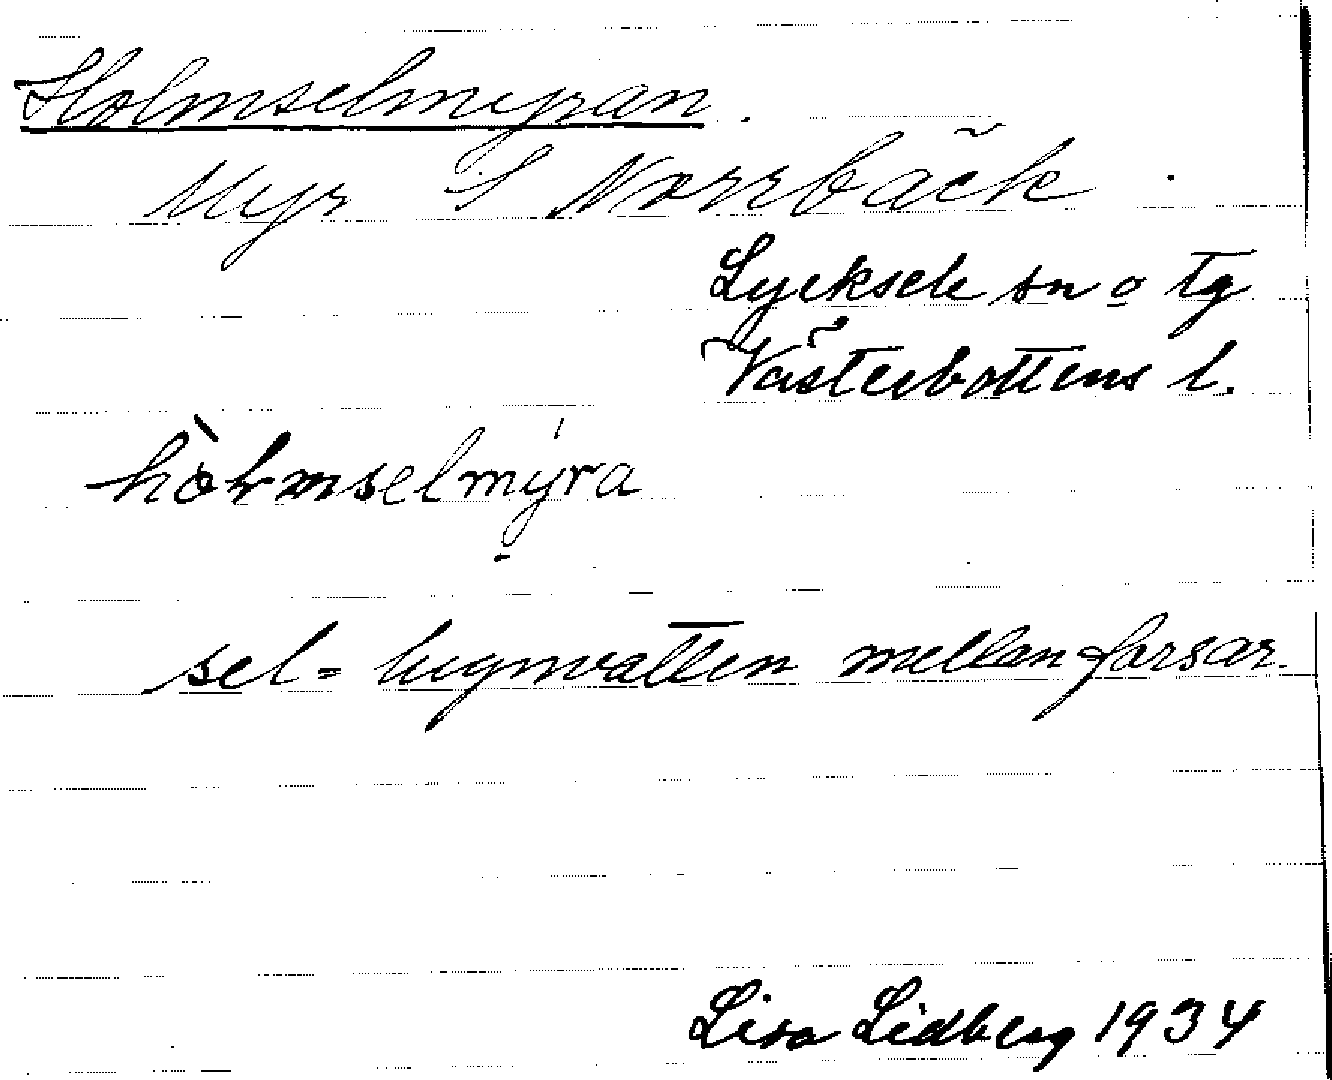 Holmselmyran.
Myr S Norrbäck.
Lycksele sn o tg
Västerbottens l.
hòhmselmýra
sel = lugnvatten mellan forsar.
Lisa Lidberg 1934